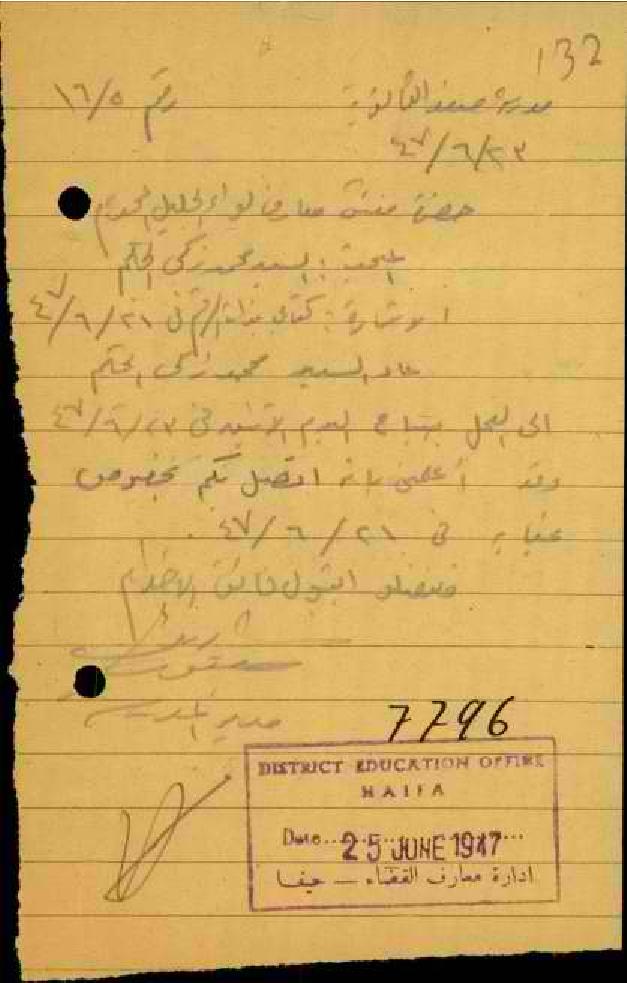 132
مدرسة صفد الثانوية رقم ١٦/٥
٤٧/٦/٢٣
حضرة مفتش معارف لواء الجليل المحترم
السيد محمد زكي الحكم
الاشارة : كتابي في ٤٧/٦/٢١
عاد السيد محمد زكي الحكم
الى العمل صباح اليوم الاثنين في ٤٧/٦/٢٣
وقد أعلمني بانه اتصل بكم بخصوص
غيابه في ٤٧/٦/٢١ .
فتفضلوا بقبول فائق الاحترام
مدير المدرسة
7796
DISTRICT EDUCATION OFFICE
HAIFA
Date 25 JUNE 1947
ادارة معارف القضاء — حيفا